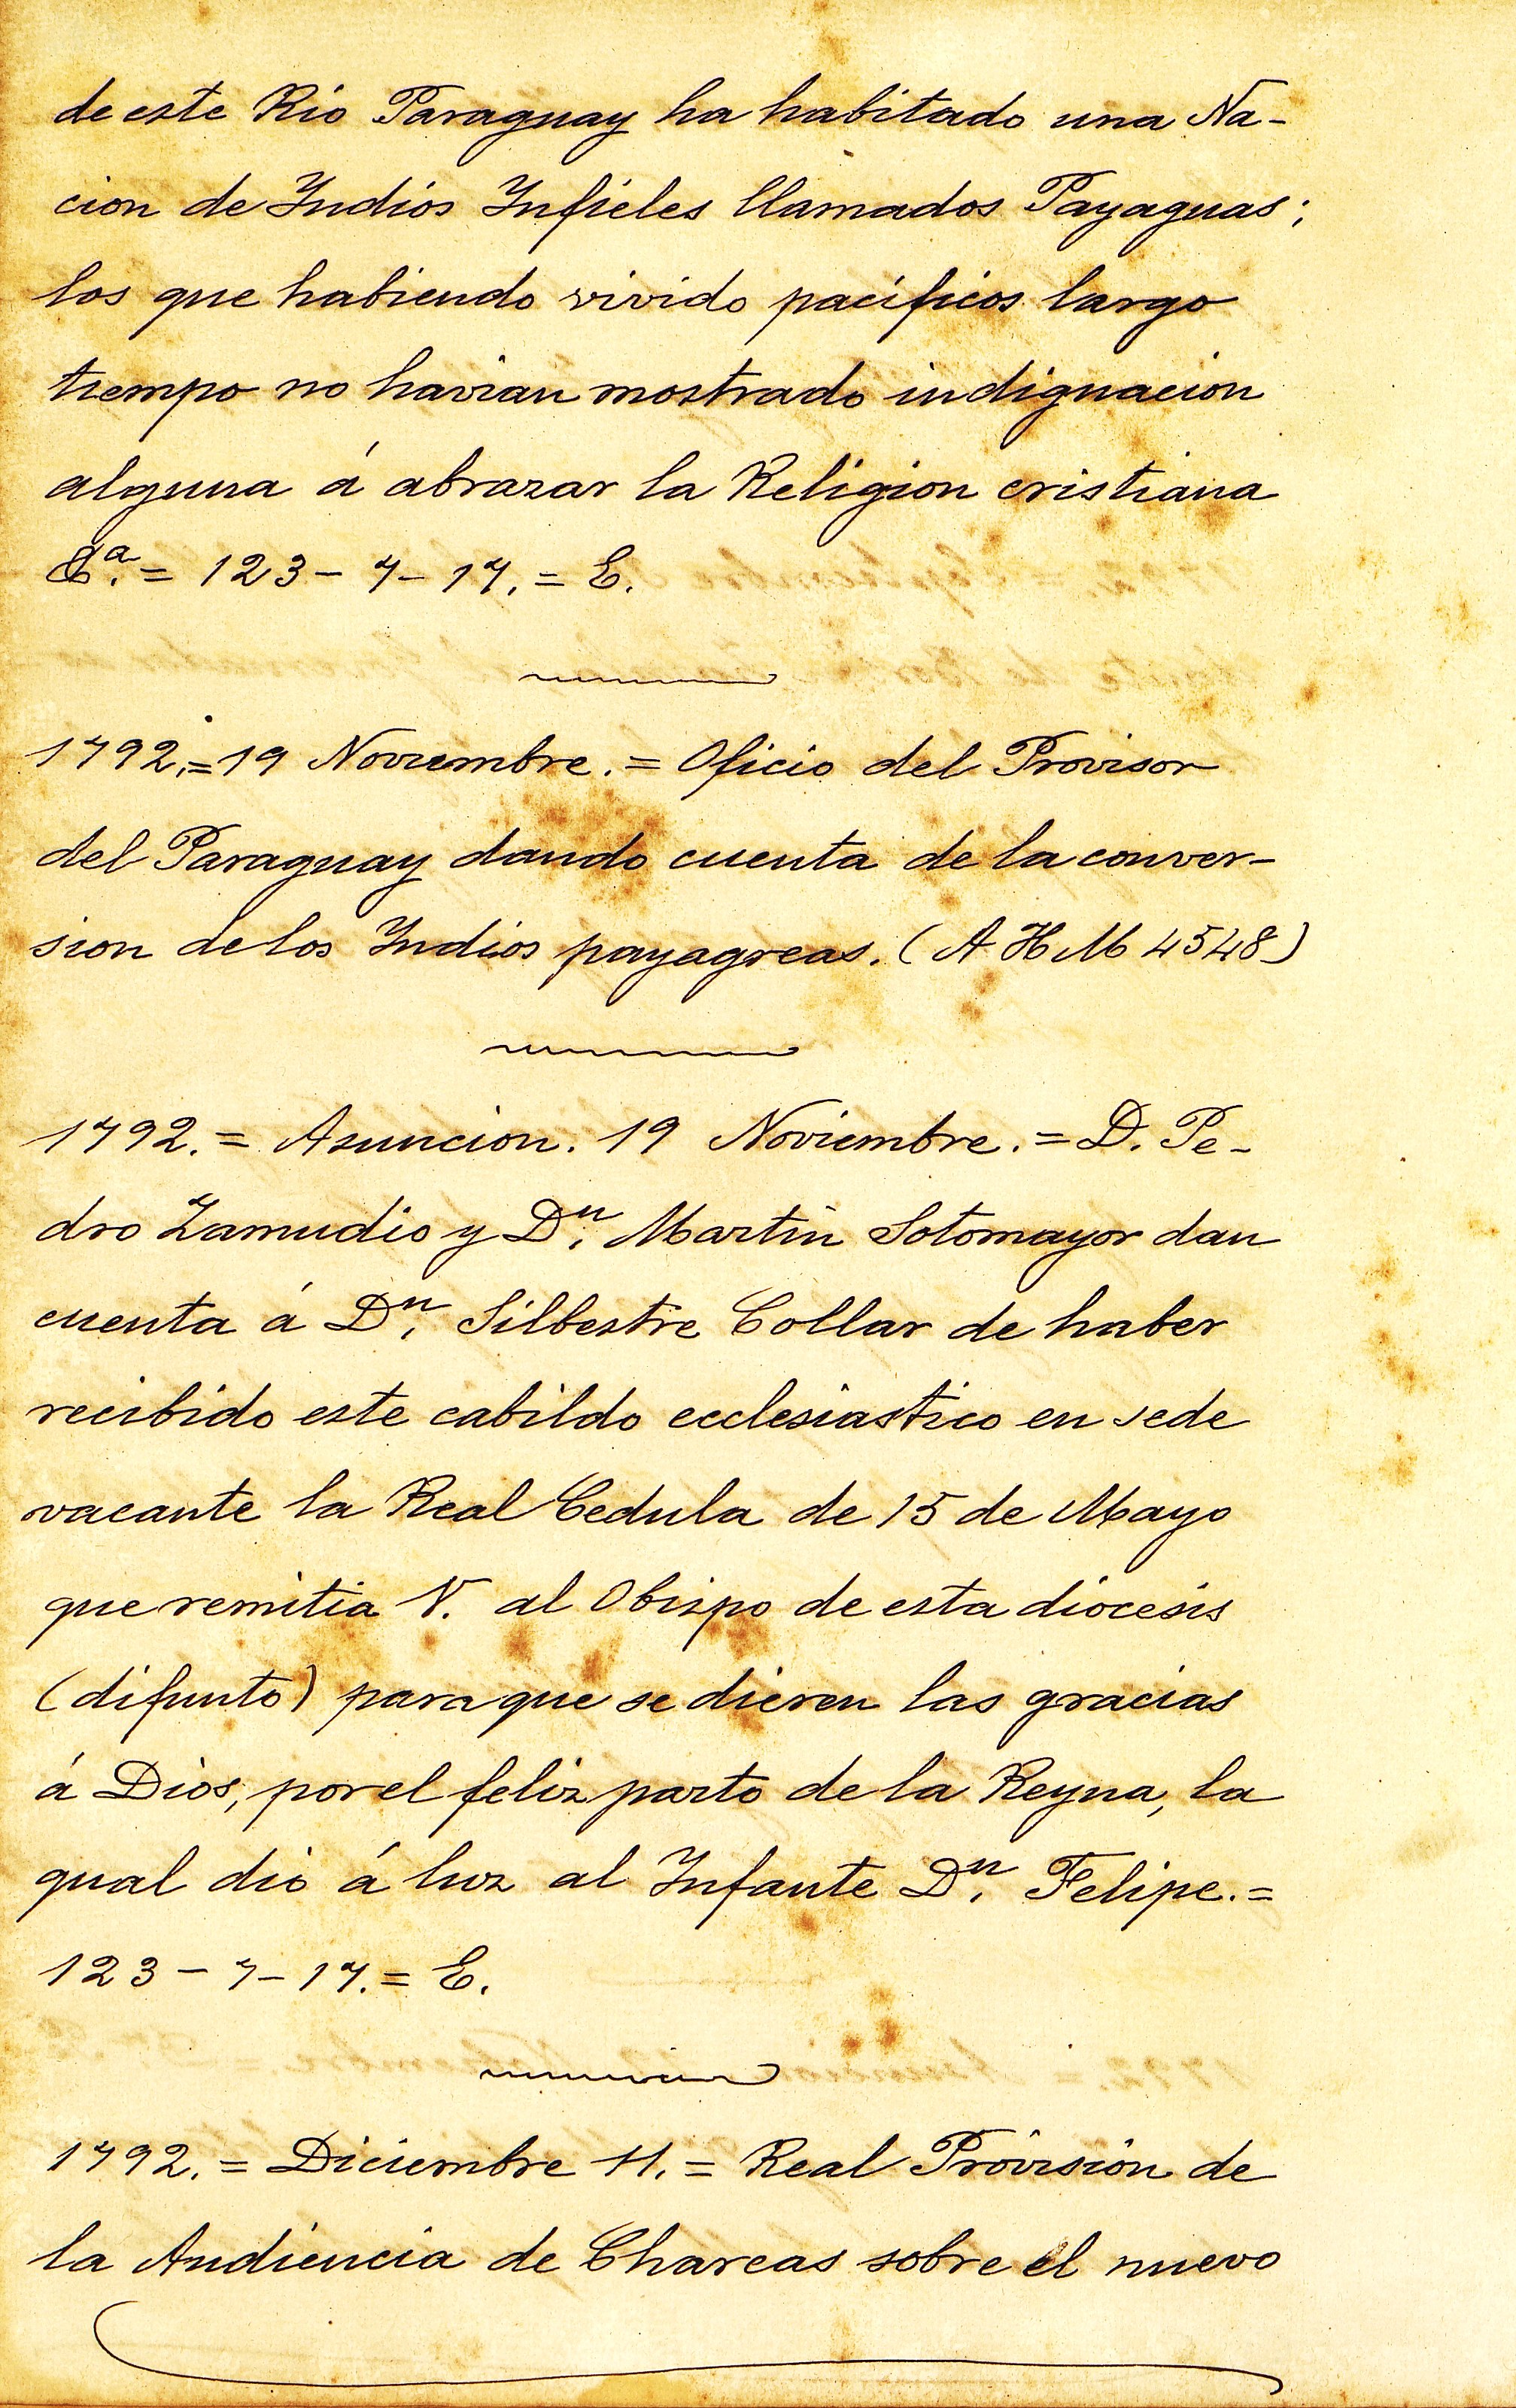 de este Rio Paraguay ha habitado una Na-
cion de Indios Infieles llamados Payaguas;
los que habiendo vivido pacificos largo
tiempo no havian mostrado indignacion
alguna á abrazar la Religion cristiana
&a. = 123 - 7 - 17. = E.
1792. = 19 Noviembre. = Oficio del Provisor
del Paraguay dando cuenta de la conver-
sion de los Indios payagreas. (A H M 4548)
1792. = Asuncion. 19 Noviembre. = D. Pe-
dro Zamudio y Dn. Martin Sotomayor dan
cuenta á Dn. Silbestre Collar de haber
recibido este cabildo ecclesiastico en sede
vacante la Real Cedula de 15 de Mayo
que remitia V. al Obispo de esta diocesis
(difunto) para que se dieren las gracias
á Dios, por el feliz parto de la Reyna, la
qual dio á luz al Infante Dn. Felipe. =
123 - 7 - 17. = E.
1792. = Diciembre 11. = Real Provision de
la Audiencia de Charcas sobre el nuevo